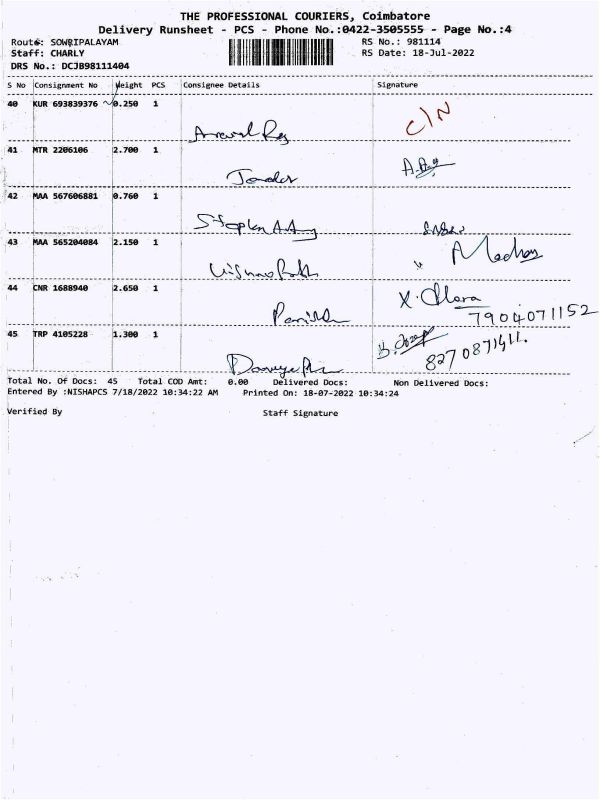 THE PROFESSIONAL COURIERS, Coimbatore
Delivery Runsheet - PCS - Phone No.:0422-3505555 - Page No.:4
Route: SOWRIPALAYAM RS No.: 981114
Staff: CHARLY RS Date: 18-Jul-2022
DRS No.: DCJB98111404
S No Consignment No Weight PCS Consignee Details Signature
40 KUR 693839376 0.250 1
C/N
41 MTR 2206106 2.700 1
42 MAA 567606881 0.760 1
43 MAA 565204084 2.150 1
44 CNR 1688940 2.650 1
7904071152
45 TRP 4105228 1.300 1
8270871411.
Total No. Of Docs: 45 Total COD Amt: 0.00 Delivered Docs: Non Delivered Docs:
Entered By :NISHAPCS 7/18/2022 10:34:22 AM Printed On: 18-07-2022 10:34:24
Verified By Staff Signature